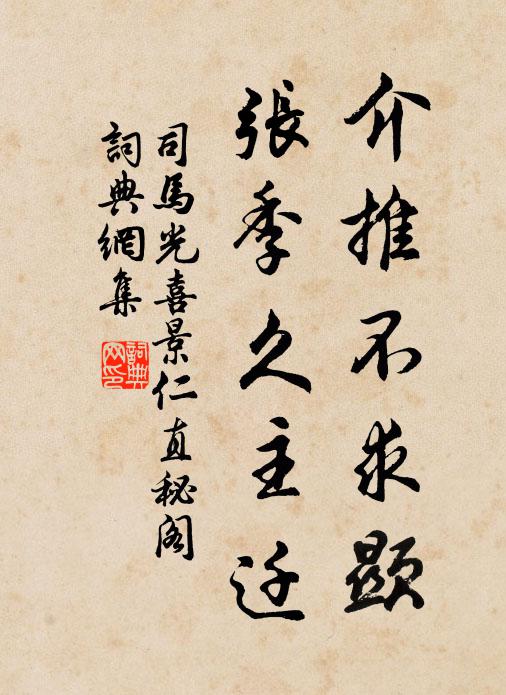 介推不求顯
張季久主迁
司馬光喜景仁直秘閣
詞典網集
詞典
网印